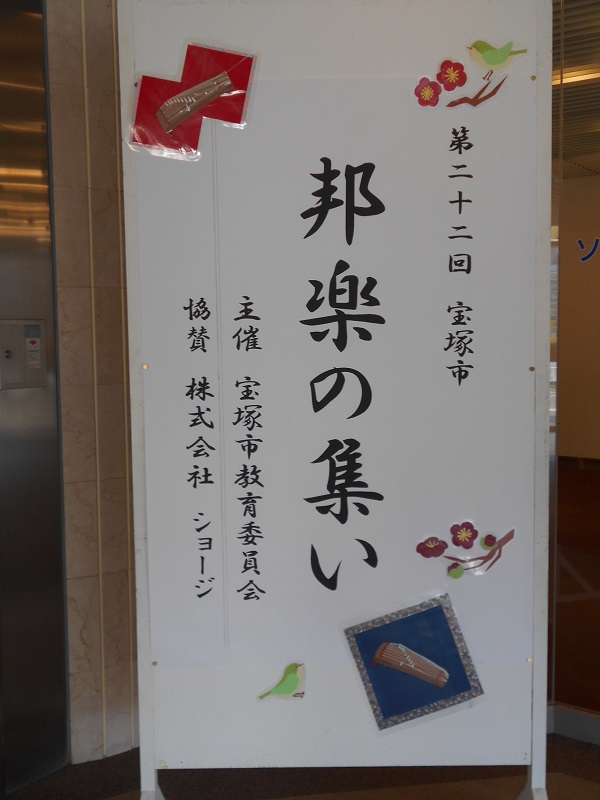 第二十二回 宝塚市
邦楽の集い
主催 宝塚市教育委員会
協賛 株式会社 ショージ
ソ